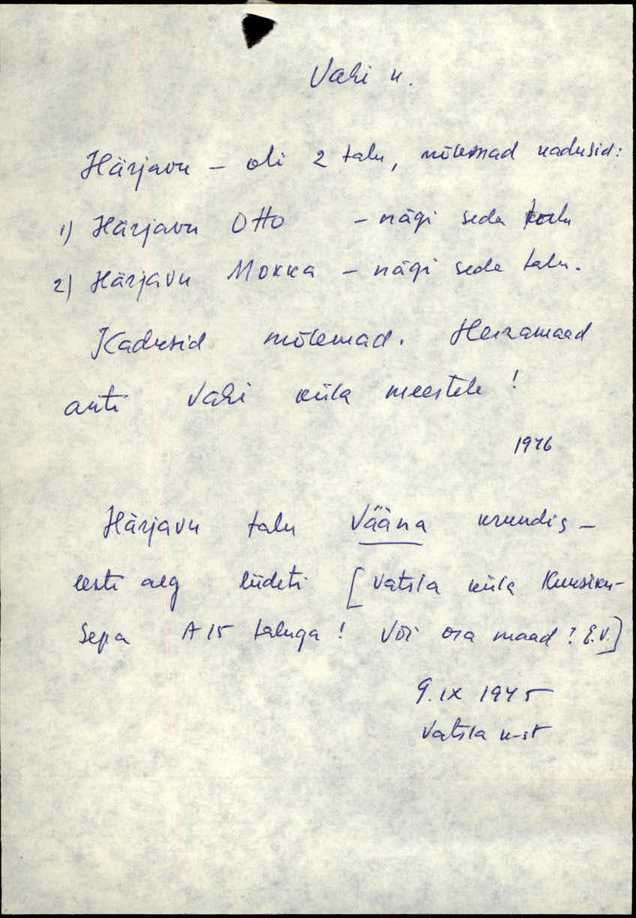 Vahi k.
Härjavu – oli 2 talu, mõlemad kadusid:
1) Härjavu Otto – nägi seda talu
2) Härjavu Mokka – nägi seda talu.
Kadusid mõlemad. Heinamaad
anti Vahi küla meestele!
1946
Härjavu talu Vääna krundis –
eesti aeg liideti [Vatsla küla Kuusiku-
Sepa A15 taluga! Või osa maad? E.V.]
9.IX 1945
Vatsla k-st